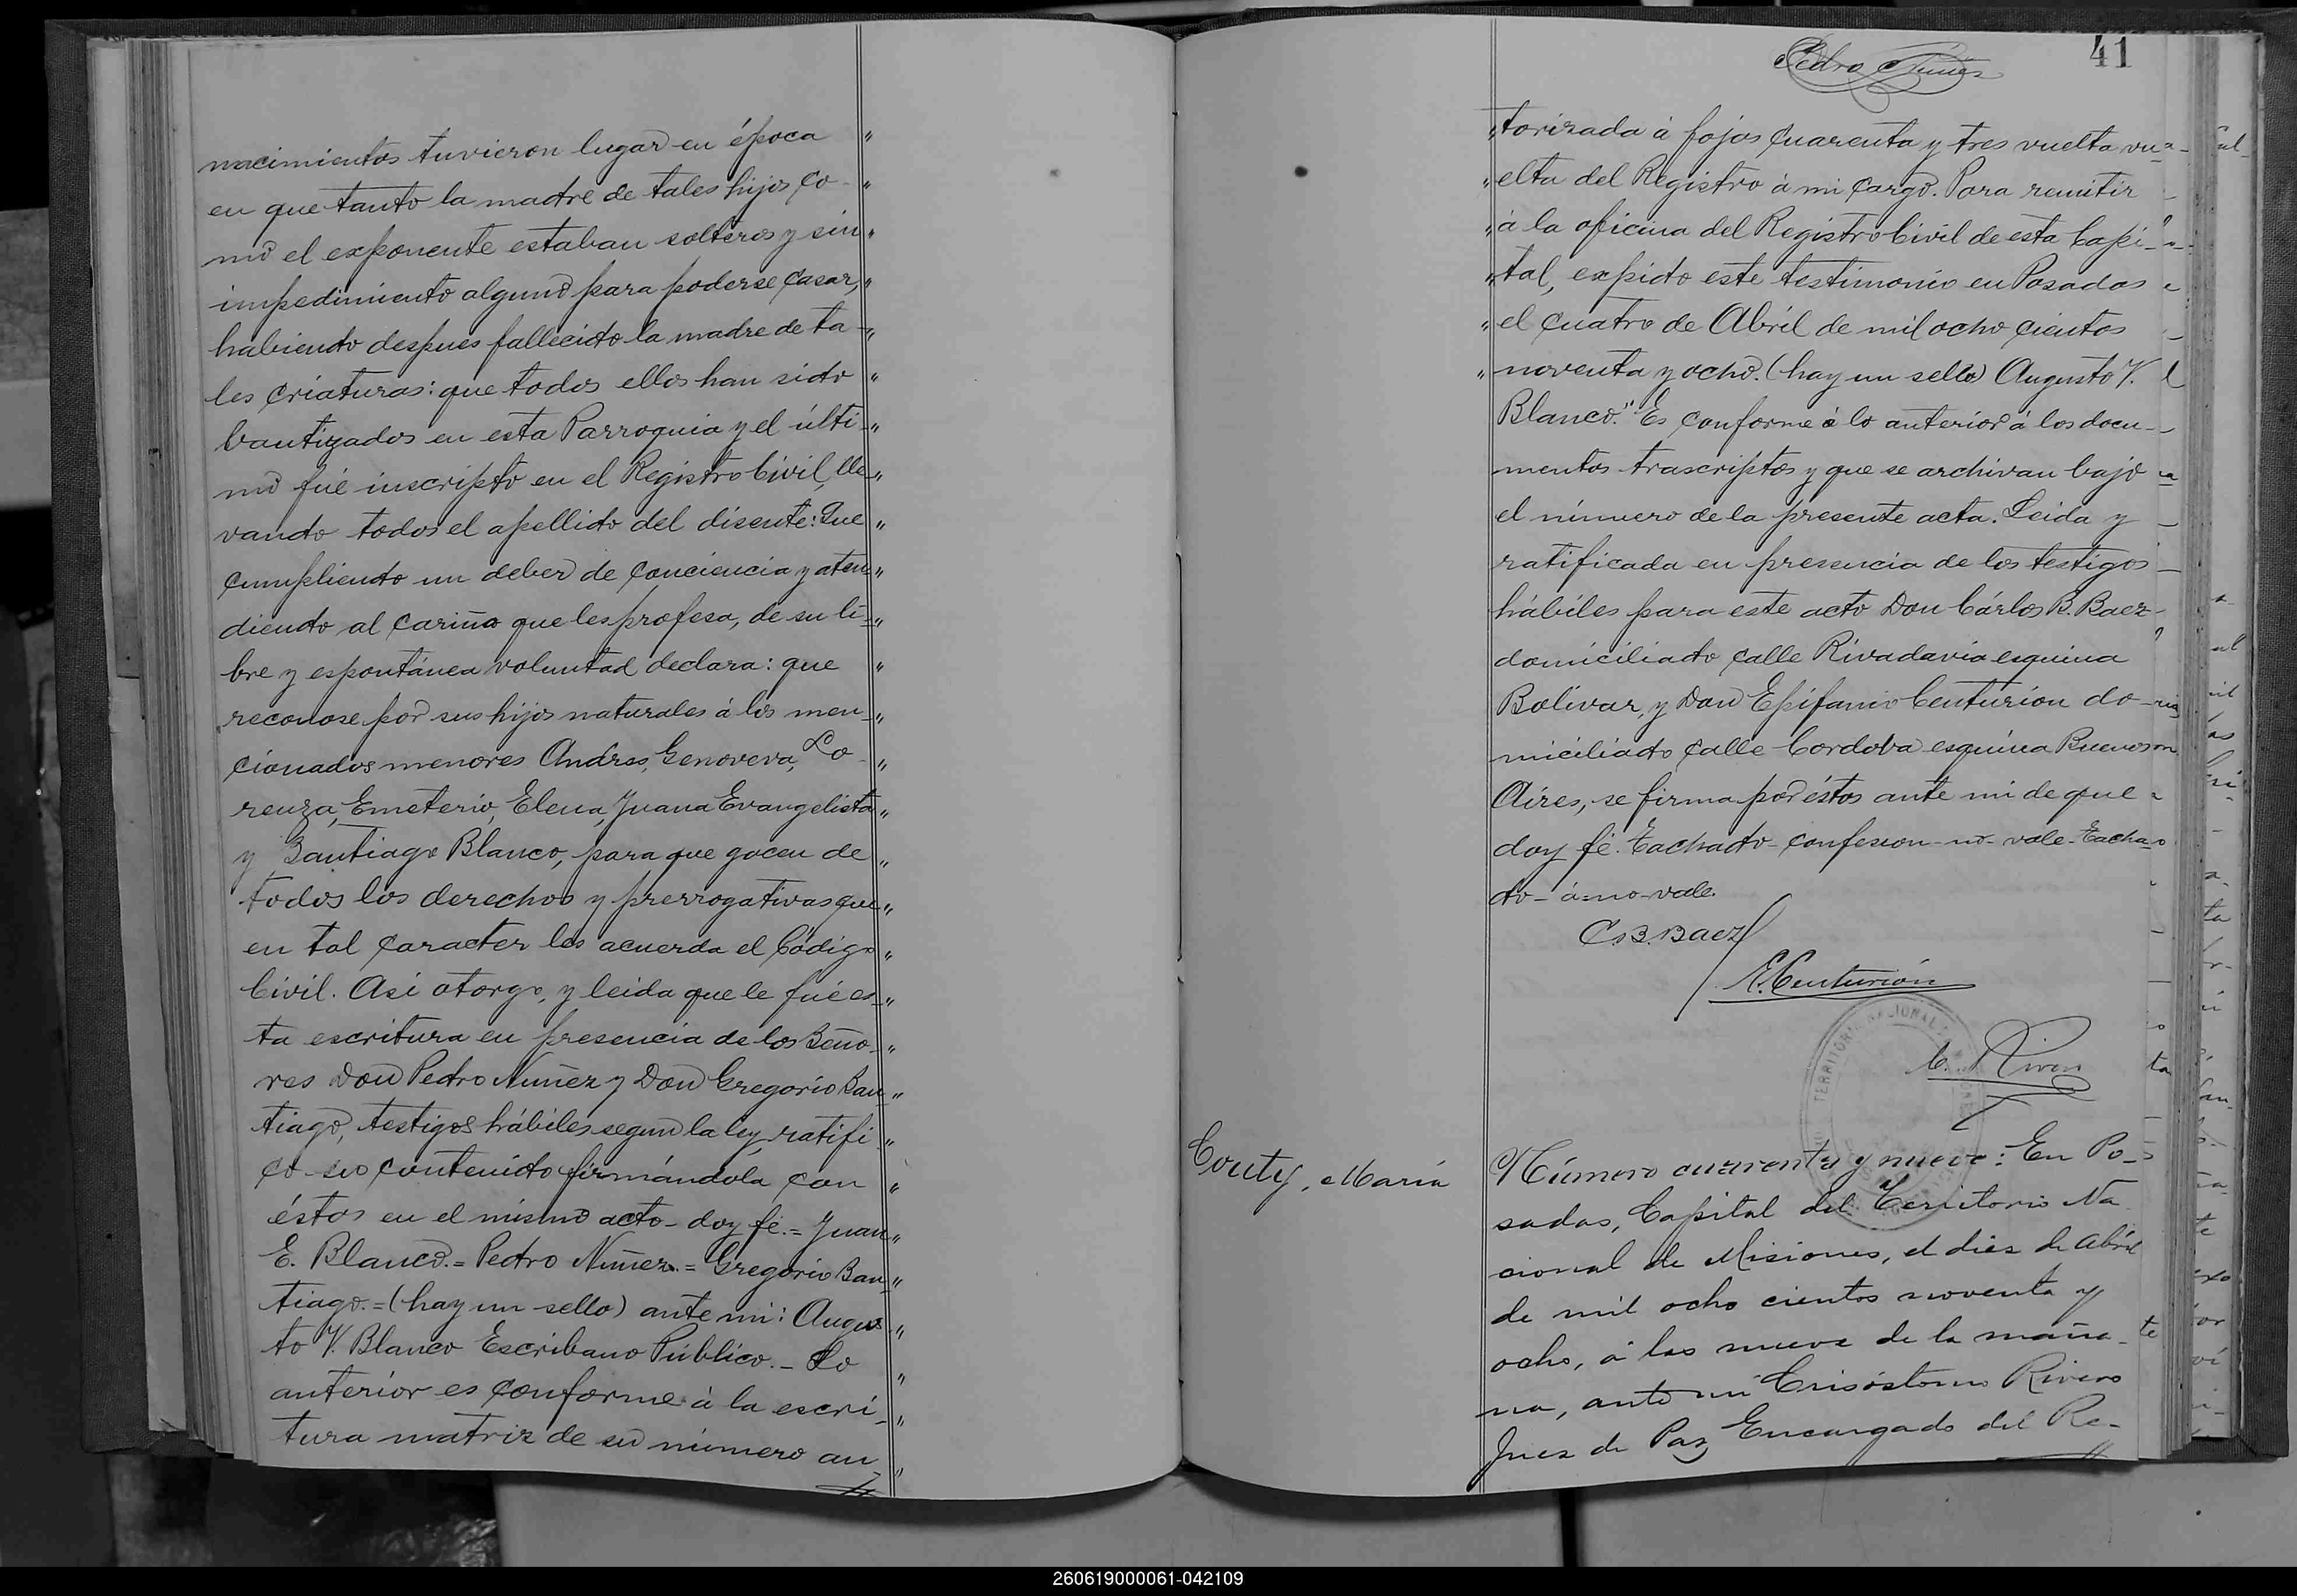 nacimientos tuvieron lugar en época "
en que tanto la madre de tales hijos co- "
mo el exponente estaban solteros y sin "
impedimiento alguno para poderse casar, "
habiendo despues fallecido la madre de ta- "
les criaturas: que todos ellos han sido "
bautizados en esta Parroquia y el últi- "
mo fué inscripto en el Registro Civil, lle- "
vando todos el apellido del disente: Que "
cumpliendo un deber de conciencia y aten- "
diendo al cariño que les profesa, de su li- "
bre y espontánea voluntad declara: que "
reconose por sus hijos naturales á los men- "
cionados menores Andres, Genoveva, Lo- "
renza, Emeterio, Elena, Juana Evangelista "
y Santiago Blanco, para que gocen de "
todos los derechos y prerrogativas que "
en tal caracter les acuerda el Código "
Civil. Asi otorgo, y leida que le fué es- "
ta escritura en presencia de los Seño- "
res Don Pedro Nuñez y Don Gregorio San- "
tiago, testigos hábiles segun la ley, ratifi- "
có su contenido firmándola con "
éstos en el mismo acto- doy fé.= Juan "
E. Blanco.= Pedro Nuñez.= Gregorio San- "
tiago.= (hay un sello) ante mi: Augus- "
to V. Blanco Escribano Público.- Lo "
anterior es conforme á la escri- "
tura matriz de su número au- "
Pedro Nuñez
41
"torizada á fojas cuarenta y tres vuelta vu-
"elta del Registro á mi cargo. Para remitir
"á la oficina del Registro Civil de esta Capi-
"tal, expido este testimonio en Posadas
"el cuatro de Abril de mil ocho cientos
"noventa y ocho. (hay un sello) Augusto V.
Blanco." Es conforme á lo anterior á los docu-
mentos trascriptos y que se archivan bajo
el número de la presente acta. Leida y
ratificada en presencia de los testigos
hábiles para este acto Don Cárlos B. Baez
domiciliado calle Rivadavia esquina
Bolívar, y Don Epifanio Centurion do-
miciliado calle Cordoba esquina Buenos
Aires, se firma por éstos ante mi de que
doy fé. Tachado- confesion- no- vale- Tacha-
do- á= no- vale.
C. B. Baez
E. Centurión
C. Rivero
TERRITORIO NACIONAL
Couty, María
Número cuarenta y nueve: En Po-
sadas, Capital del Territorio Na-
cional de Misiones, el diez de Abril
de mil ocho cientos noventa y
ocho, á las nueve de la maña-
na, ante mi Crisóstomo Rivero
Juez de Paz Encargado del Re-
260619000061-042109